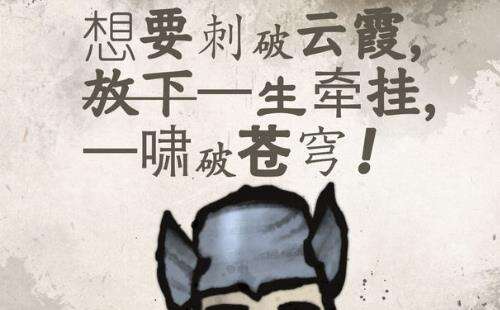 想要刺破云霞,
放下一生牵挂,
一啸破苍穹!